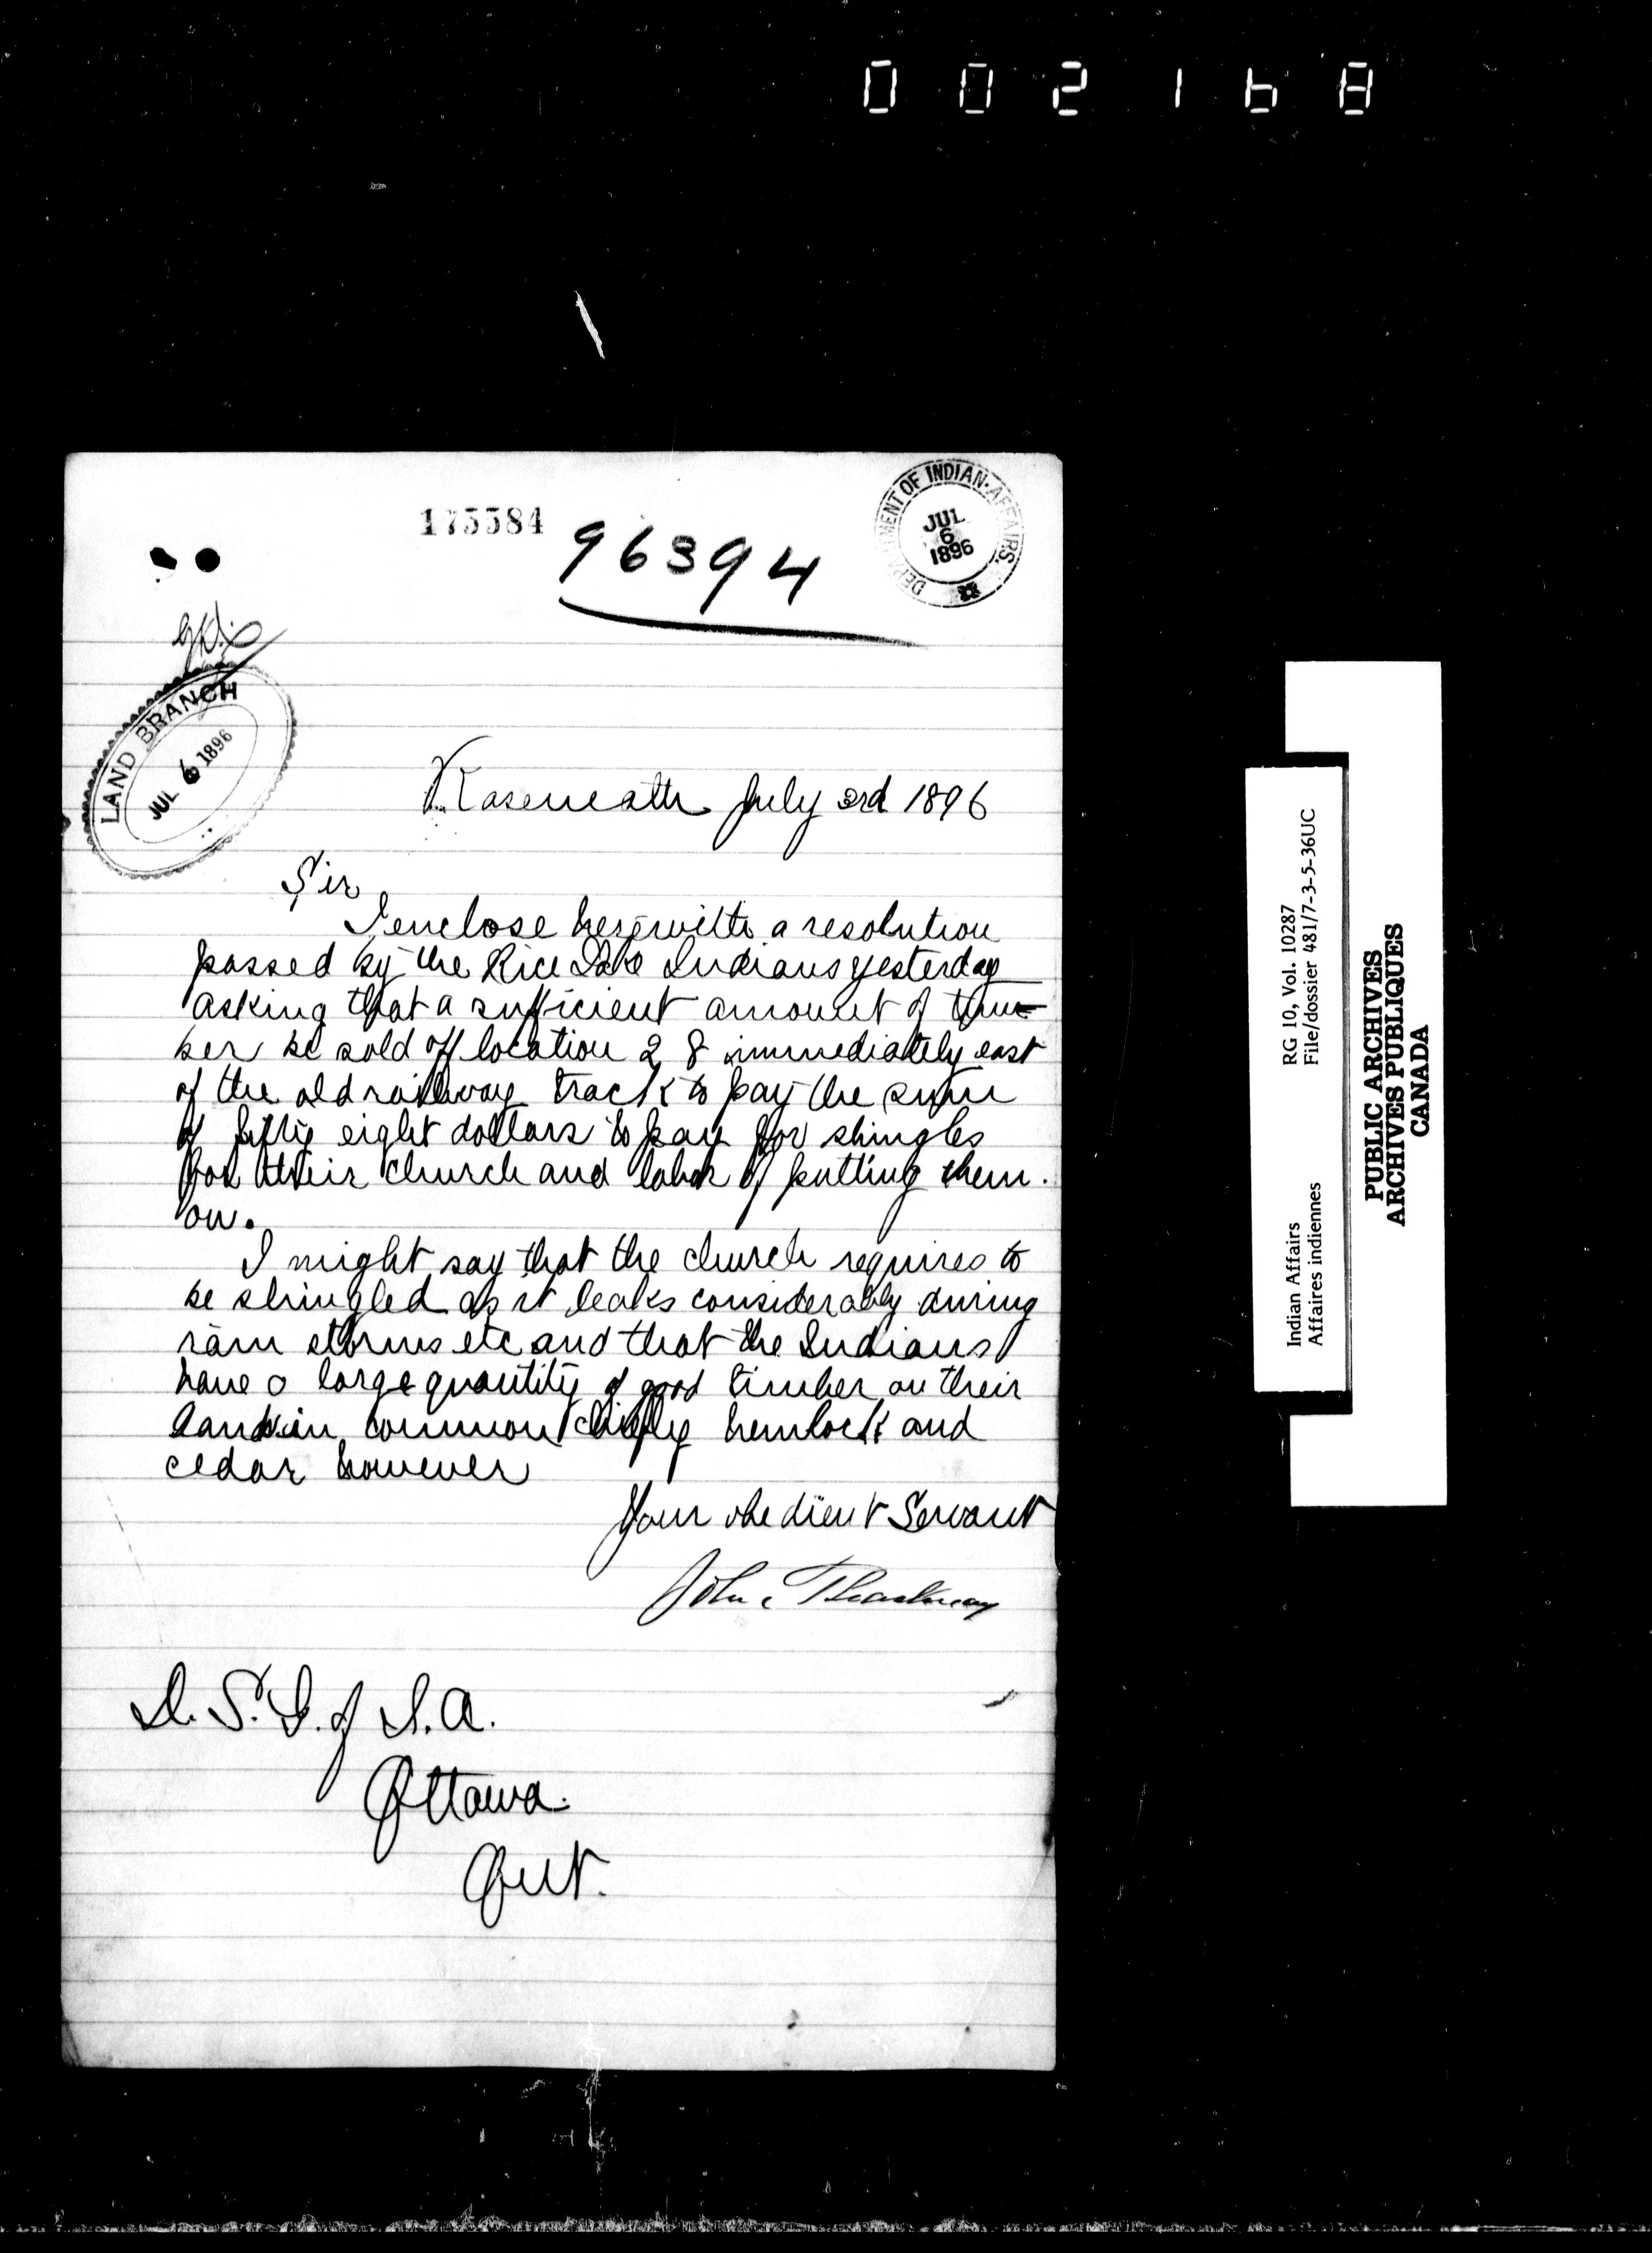 002168
175584
96394
DEPARTMENT OF INDIAN AFFAIRS.
JUL
6
1896
LAND BRANCH
JUL 6 1896
Roseneath July 3rd 1896
Sir
I enclose herewith a resolution
passed by the Rice Lake Indians yesterday
asking that a sufficient amount of tim-
ber be sold off location 28 immediately east
of the old railway track to pay the sum
of fifty eight dollars to pay for shingles
for their church and labor of putting them
on.
I might say that the church requires to
be shingled as it leaks considerably during
rain storms etc and that the Indians
have a large quantity of good timber on their
land in common chiefly hemlock and
cedar however
Your obedient Servant
John Thackeray
D. S. G. of I. A.
Ottawa.
Ont.
Indian Affairs RG 10, Vol. 10287
Affaires indiennes File/dossier 481/7-3-5-36UC
PUBLIC ARCHIVES
ARCHIVES PUBLIQUES
CANADA